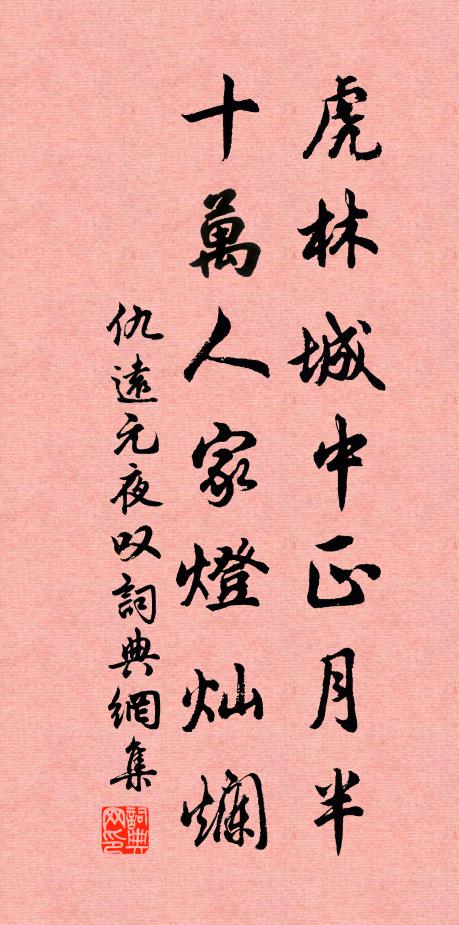 虎林城中正月半
十萬人家燈灿爛
仇遠元夜叹詞典網集
詞典网印